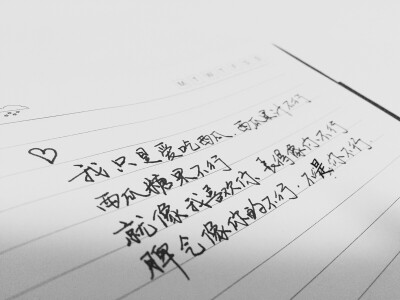 我只是爱吃西瓜、西瓜果汁不行
西瓜糖果不行
就像我喜欢你、长得像你不行
脾气像你的不行、不是你不行.